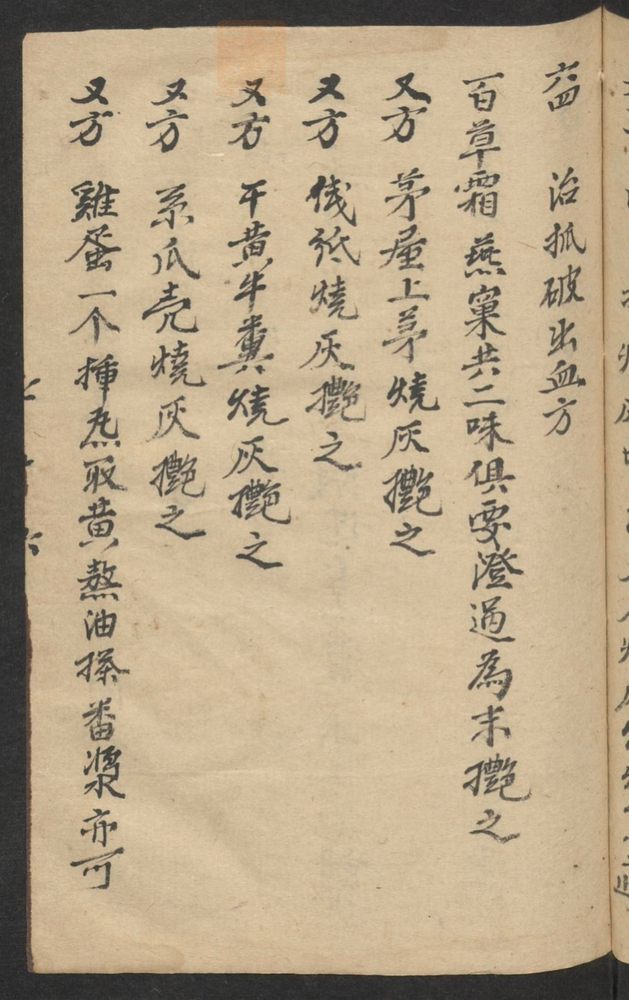 六四 治抓破出血方
百草霜 燕窠共二味俱要澄過為末𢹂之
又方 茅屋上茅燒灰𢹂之
又方 伐紙燒灰𢹂之
又方 干黃牛糞燒灰𢹂之
又方 糸瓜壳燒灰𢹂之
又方 雞蛋一个 取黃熬油搽番漿亦可